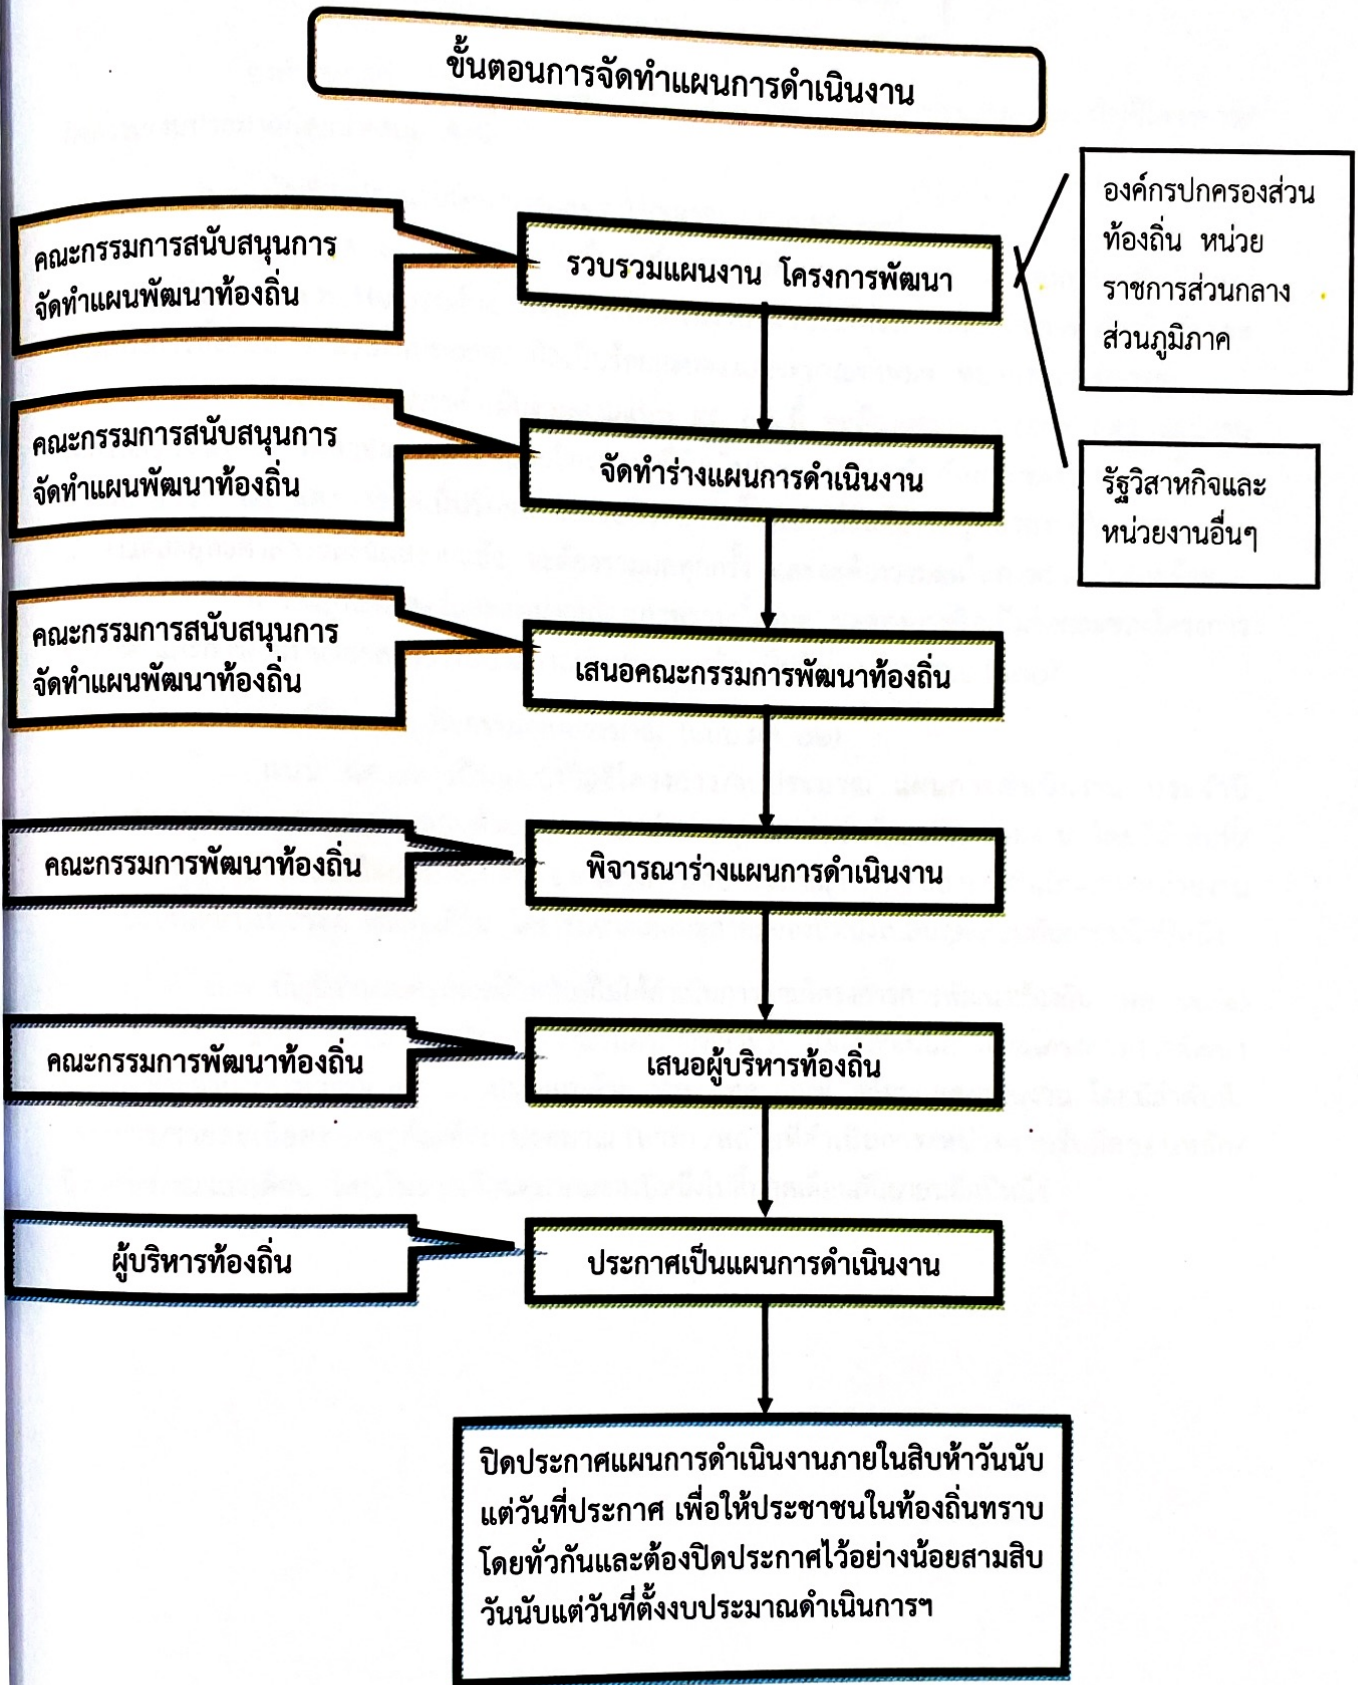 ขั้นตอนการจัดทำแผนการดำเนินงาน
คณะกรรมการสนับสนุนการ
จัดทำแผนพัฒนาท้องถิ่น
รวบรวมแผนงาน โครงการพัฒนา
องค์กรปกครองส่วน
ท้องถิ่น หน่วย
ราชการส่วนกลาง
ส่วนภูมิภาค
คณะกรรมการสนับสนุนการ
จัดทำแผนพัฒนาท้องถิ่น
จัดทำร่างแผนการดำเนินงาน
รัฐวิสาหกิจและ
หน่วยงานอื่นๆ
คณะกรรมการสนับสนุนการ
จัดทำแผนพัฒนาท้องถิ่น
เสนอคณะกรรมการพัฒนาท้องถิ่น
คณะกรรมการพัฒนาท้องถิ่น
พิจารณาร่างแผนการดำเนินงาน
คณะกรรมการพัฒนาท้องถิ่น
เสนอผู้บริหารท้องถิ่น
ผู้บริหารท้องถิ่น
ประกาศเป็นแผนการดำเนินงาน
ปิดประกาศแผนการดำเนินงานภายในสิบห้าวันนับ
แต่วันที่ประกาศ เพื่อให้ประชาชนในท้องถิ่นทราบ
โดยทั่วกันและต้องปิดประกาศไว้อย่างน้อยสามสิบ
วันนับแต่วันที่ตั้งงบประมาณดำเนินการฯ